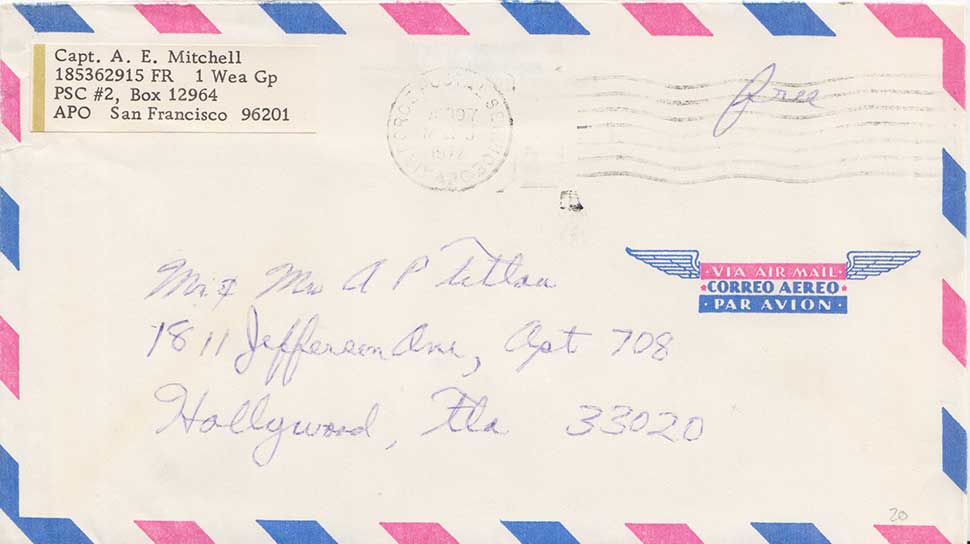 Capt. A. E. Mitchell
185362915 FR 1 Wea Gp
PSC #2, Box 12964
APO San Francisco 96201
POSTAL SERVICE
1972
Free
VIA AIR MAIL
CORREO AEREO
PAR AVION
Mr & Mrs A P
1811 Jefferson Ave, Apt 708
Hollywood, Fla 33020
20